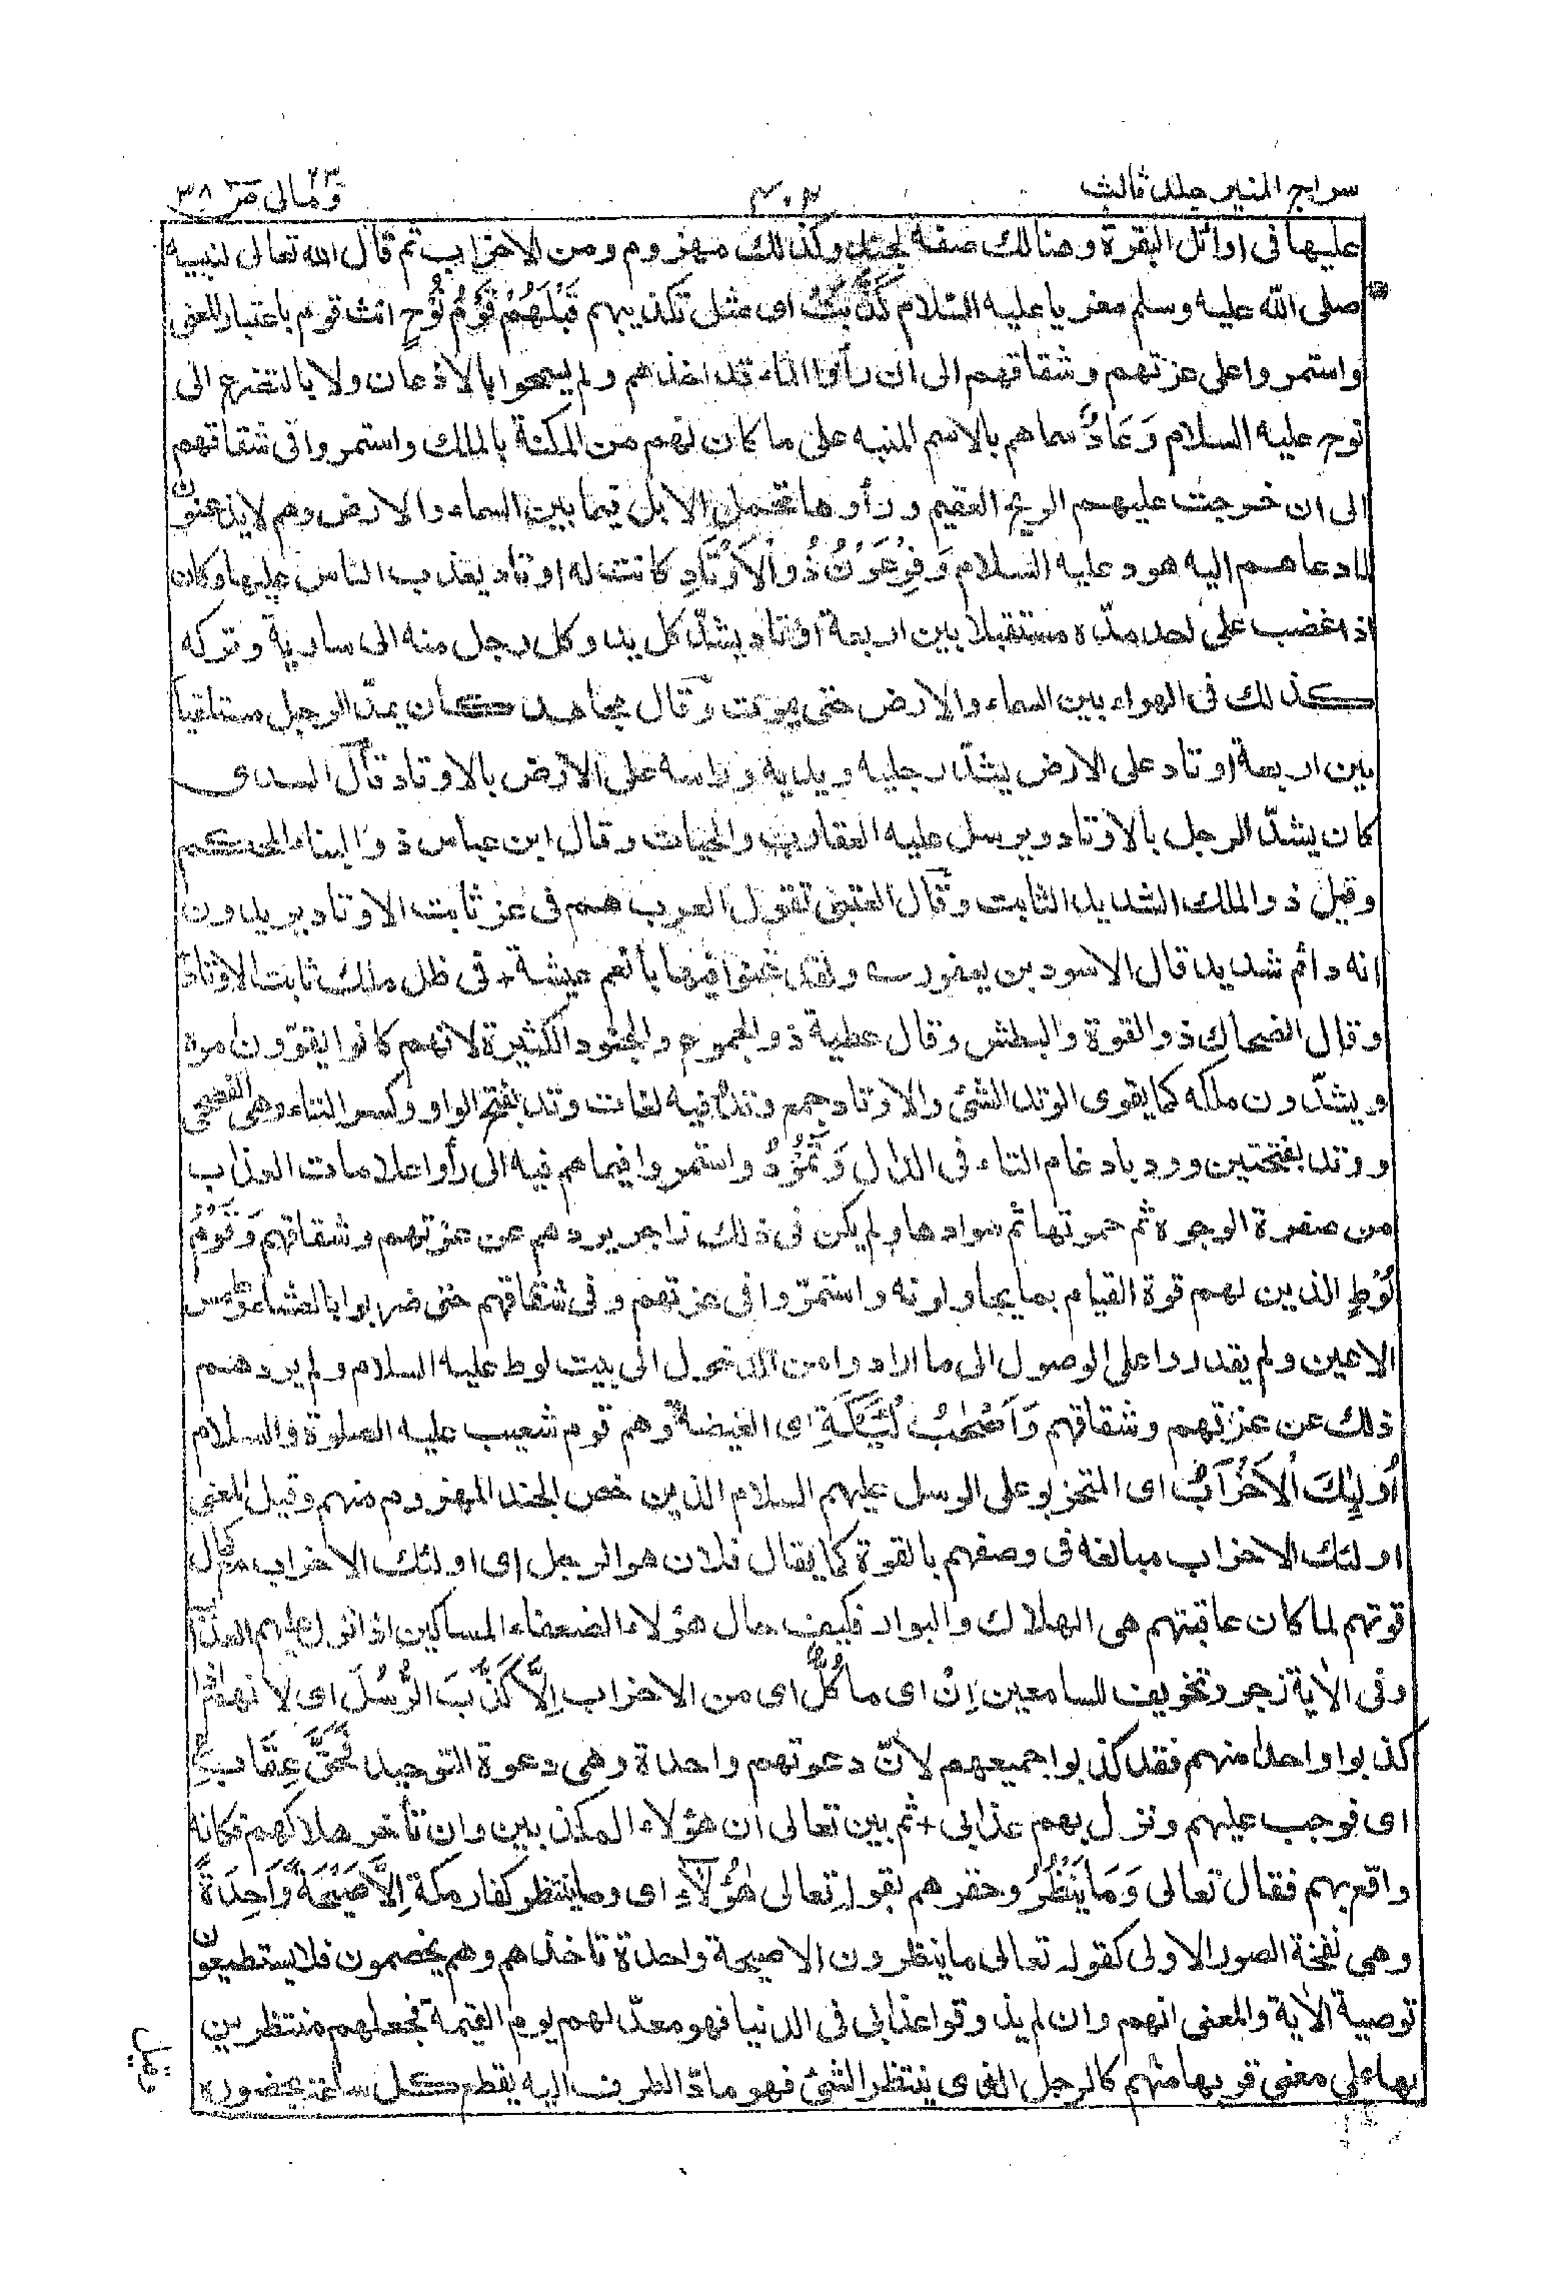 سراج المنير جلد ثالث
٤٠٢
ومالى ٢٣ ص ٣٨
عليها فى اوائل البقرة وهنالك صفة لجند وكذلك مهزوم ومن الاحزاب ثم قال الله تعالى لنبيه
صلى الله عليه وسلم معزيا عليه السلام كَذَّبَتْ اى مثل تكذيبهم قَبْلَهُمْ قَوْمُ نُوْحٍ انث قوم باعتبار المعنى
واستمروا على عزتهم وشقاقهم الى ان رأوا الماء قد اخذهم ولم يسمحوا بالاذعان ولا بالتضرع الى
نوح عليه السلام وَعَادٌ سماهم بالاسم المنبه على ما كان لهم من المكنة بالملك واستمروا فى شقاقهم
الى ان خرجت عليهم الريح العقيم ورأوها تحمل الابل فيما بين السماء والارض وهم لا يذعنون
لما دعاهم اليه هود عليه السلام وَفِرْعَوْنُ ذُو الْاَوْتَادِ كانت له اوتاد يعذب الناس عليها وكان
اذا غضب على احد مدّه مستقبلا بين اربعة اوتاد يشدّ كل يد وكل رجل منه الى سارية وتركه
كذلك فى الهواء بين السماء والارض حتى يموت وقال مجاهد كان يمدّ الرجل مستلقيا
بين اربعة اوتاد على الارض يشدّ رجليه ويديه وراسه على الارض بالاوتاد قال السدى
كان يشدّ الرجل بالاوتاد ويرسل عليه العقارب والحيات وقال ابن عباس ذو البناء المحكم
وقيل ذو الملك الشديد الثابت وقال القتبى تقول العرب هم فى عز ثابت الاوتاد يريدون
انه دائم شديد قال الاسود بن يعفور ولقد غنوا فيها بانعم عيشة + فى ظل ملك ثابت الاوتاد
وقال الضحاك ذو القوة والبطش وقال عطية ذو الجموع والجنود الكثيرة لانهم كانوا يقوّون امره
ويشدّون ملكه كما يقوى الوتد الشئ والاوتاد جمع وتد فيه لغات وتد بفتح الواو وكسر التاء وهى الفصحى
ووتد بفتحتين وود بادغام التاء فى الدال وَثَمُوْدُ واستمروا فيما هم فيه الى رأوا علامات العذاب
من صفرة الوجوه ثم حمرتها ثم سوادها ولم يكن فى ذلك زاجر يردهم عن عزتهم وشقاقهم وَقَوْمُ
لُوْطٍ الذين لهم قوة القيام بما يحاولونه واستمرّوا فى عزتهم وفى شقاقهم حتى ضربوا بالعشا وطمس
الاعين ولم يقدروا على الوصول الى ما ارادوا من الدخول الى بيت لوط عليه السلام ولم يردهم
ذلك عن عزتهم وشقاقهم وَاَصْحٰبُ لْئَيْكَةِ اى الغيضة وهم قوم شعيب عليه الصلوة والسلام
اُولٰئِكَ الْاَحْزَابُ اى المتحزبو على الرسل عليهم السلام الذين خص الجند المهزوم منهم وقيل المعنى
اولئك الاحزاب مبالغة فى وصفهم بالقوة كما يقال فلان هو الرجل اى اولئك الاحزاب مع كمال
قوتهم لما كان عاقبتهم هى الهلاك والبوار فكيف حال هؤلاء الضعفاء المساكين اذا نزل عليهم العذاب
وفى الاية زجر وتخويف للسامعين اِنْ اى ما كُلٌّ اى من الاحزاب اِلَّا كَذَّبَ الرُّسُلَ اى لانهم اذا
كذبوا واحدا منهم فقد كذبوا جميعهم لانّ دعوتهم واحدة وهى دعوة التوحيد فَحَقَّ عِقَابِ
اى فوجب عليهم ونزل بهم عذابى + ثم بين تعالى ان هؤلاء المكذبين وان تأخر هلاكهم فكانه
واقع بهم فقال تعالى وَمَا يَنْظُرُ وحقرهم بقوله تعالى هٰؤُلَاءِ اى وما ينتظر كفار مكة اِلَّا صَيْحَةً وَّاحِدَةً
وهى نفخة الصور الاولى كقوله تعالى ما ينظرون الا صيحة واحدة تاخذهم وهم يخصمون فلا يستطيعون
توصية الاية والمعنى انهم وان لم يذوقوا عذابى فى الدنيا فهو معدّ لهم يوم القيمة فجعلهم منتظرين
بها على معنى قربها منهم كالرجل الذى ينتظر الشئ فهو مادّ الطرف اليه يقطع كل ساعة بحضوره
وقيل